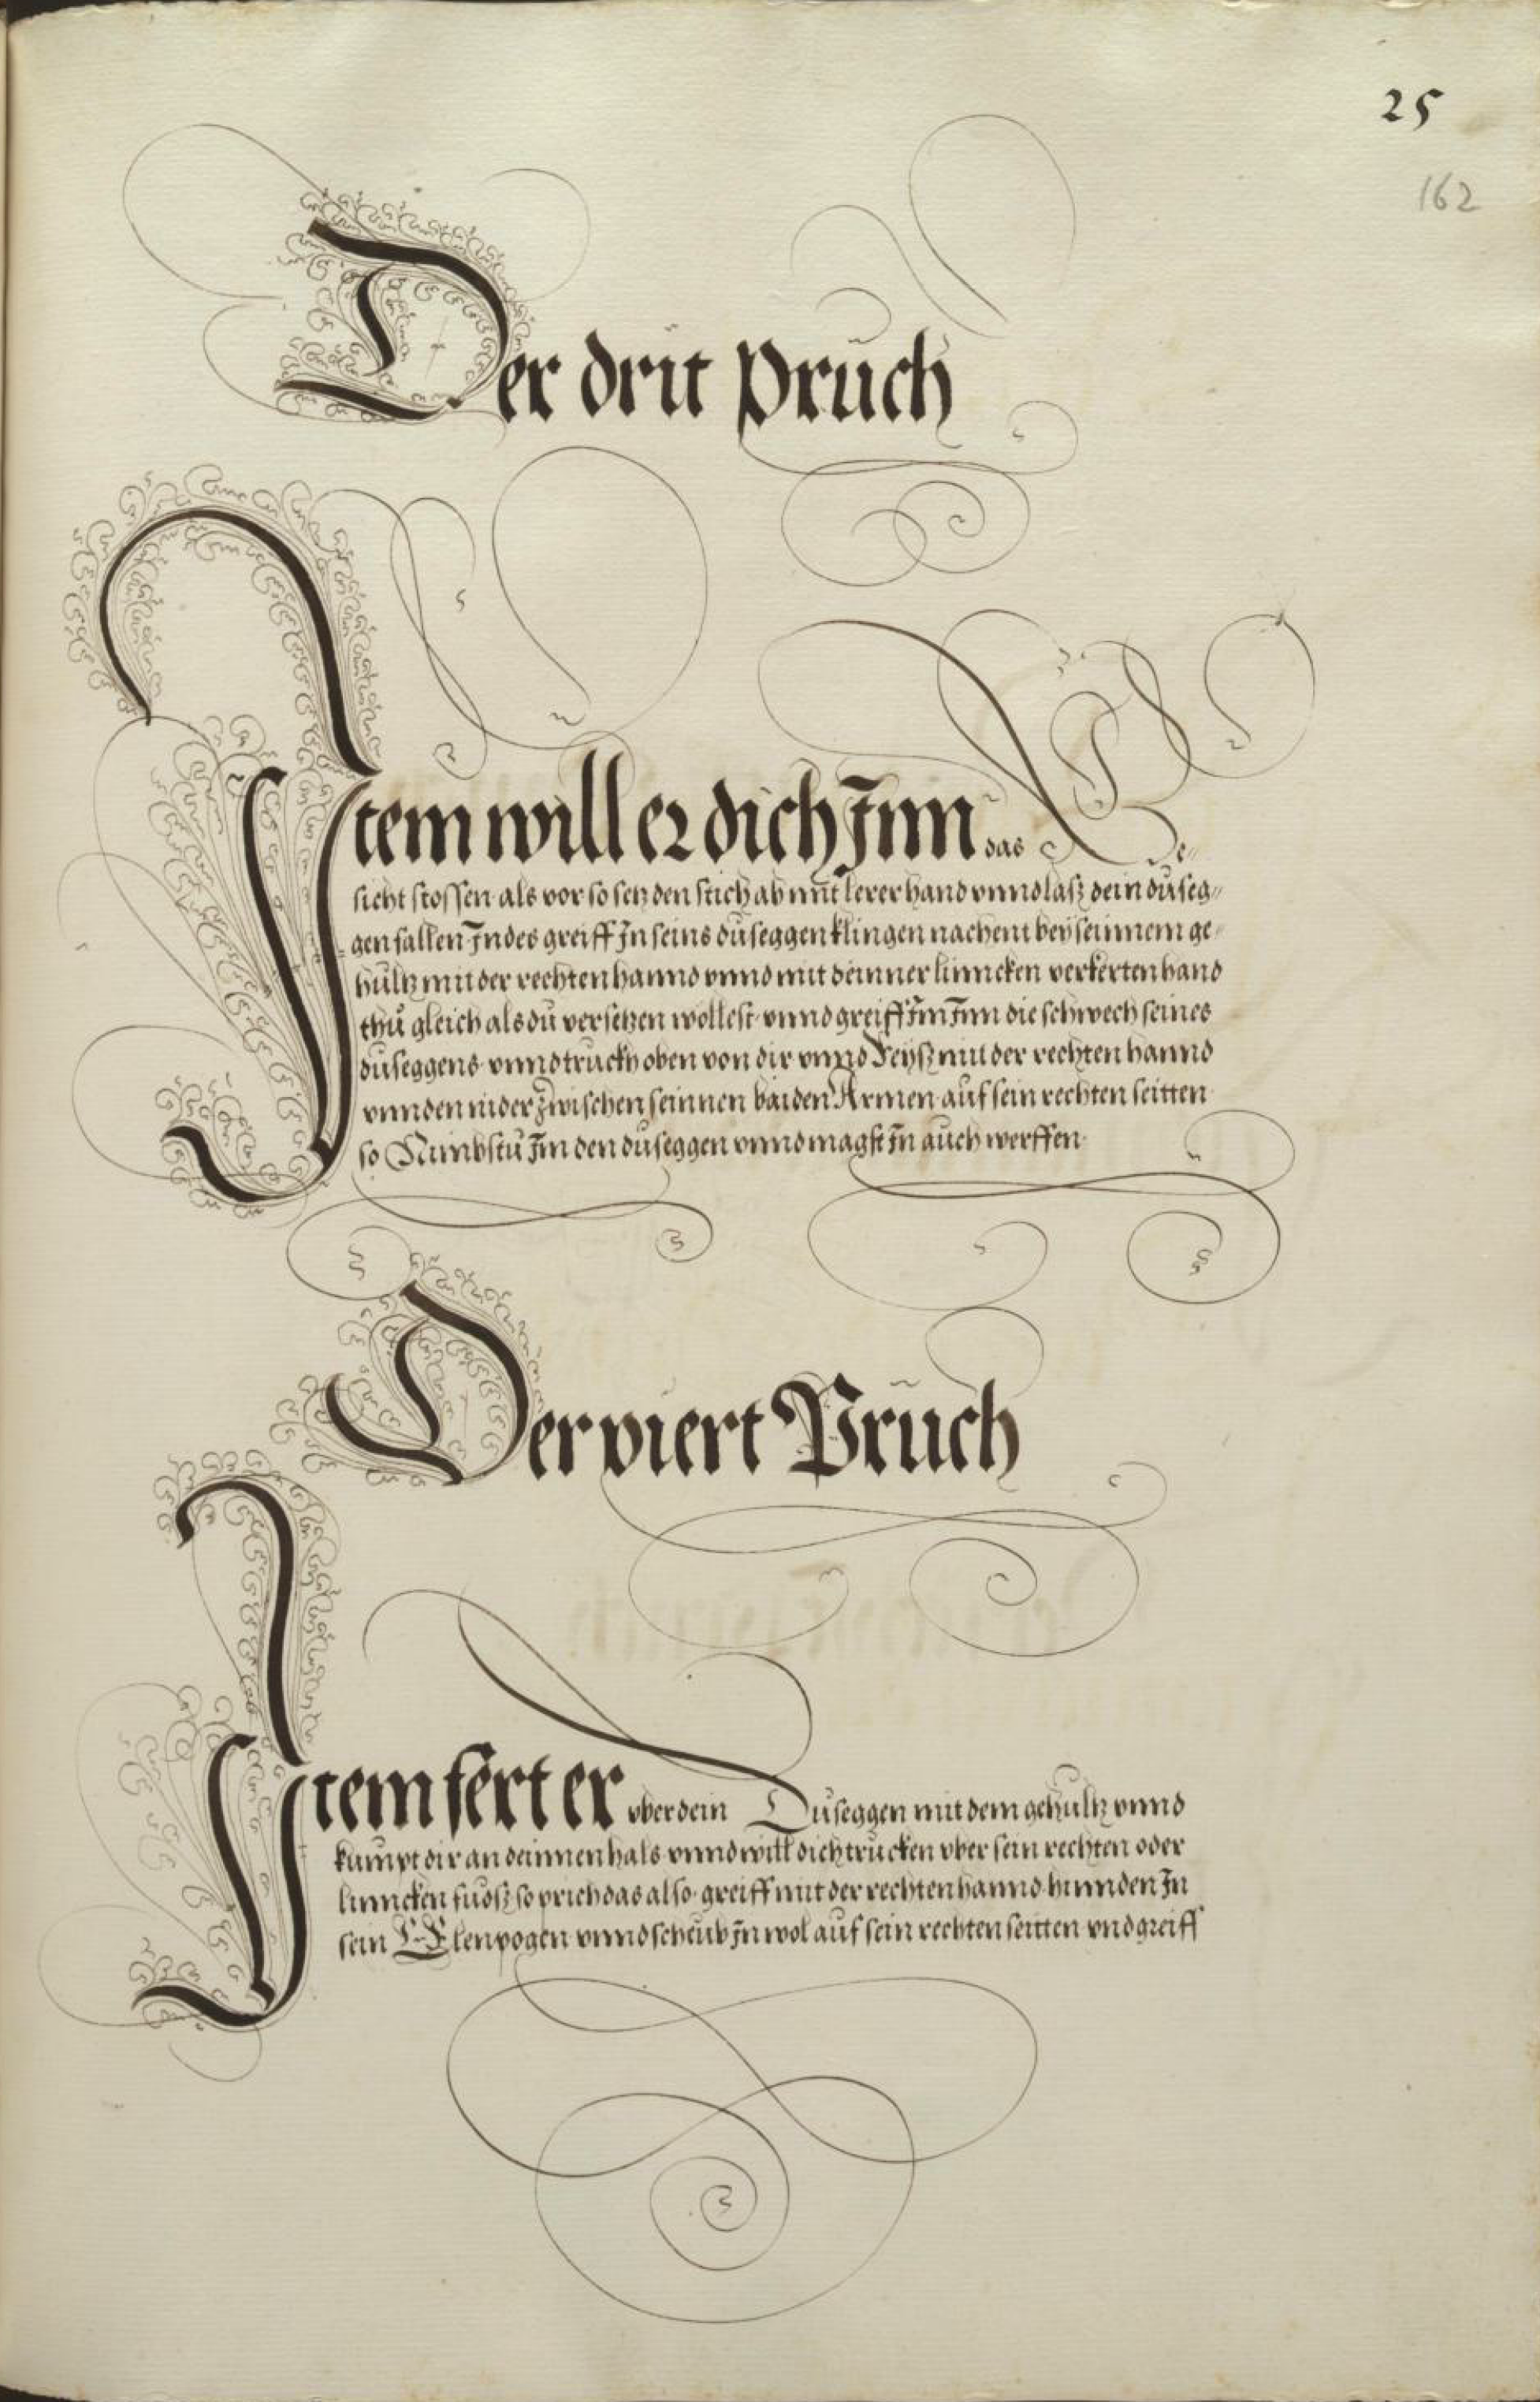 25
162
Der drit pruch
Item will er dich Inn das Ge-
sicht stossen als vor so setz den stich ab mit lerer hand vnnd lasz dein duseg-
gen fallen Indes greiff In seins duseggen klingen nachent bey seinnem ge-
hultz mit der rechten hannd vnnd mit deinner linncken verkerten hand
thu gleich als du versetzen wollest vnnd greiff Im Inn die schwech seines
duseggens vnnd truckh oben von dir vnnd Reysz mit der rechten hannd
vnnden nider zwischen seinnen baiden Armen auf sein rechten seitten
so Nimbstu Im den duseggen vnnd magst In auch werffen
Der viert Pruch
Item fert er vber dein Duseggen mit dem gehultz vnnd
kumpt dir an deinnen hals vnnd will dich trucken vber sein rechten oder
linncken fuosz so prich das also greiff mit der rechten hannd hinnden In
sein Elenpogen vnnd scheub In wol auf sein rechten seitten vnd greiff